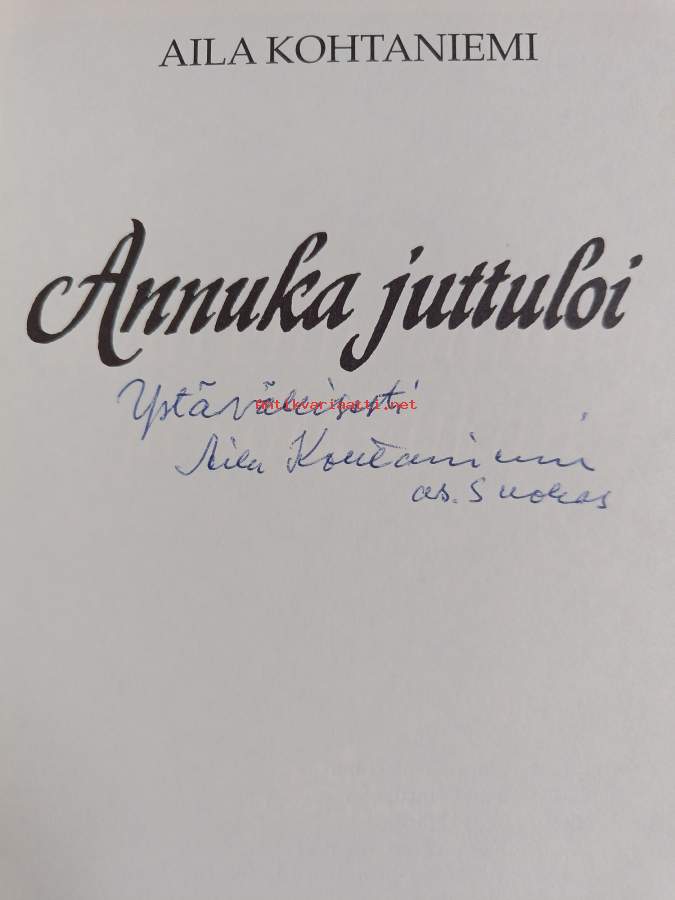 AILA KOHTANIEMI
Annuka juttuloi
Ystävällisesti
antikvariaatti.net
Aila Kohtaniemi
os. Suokas